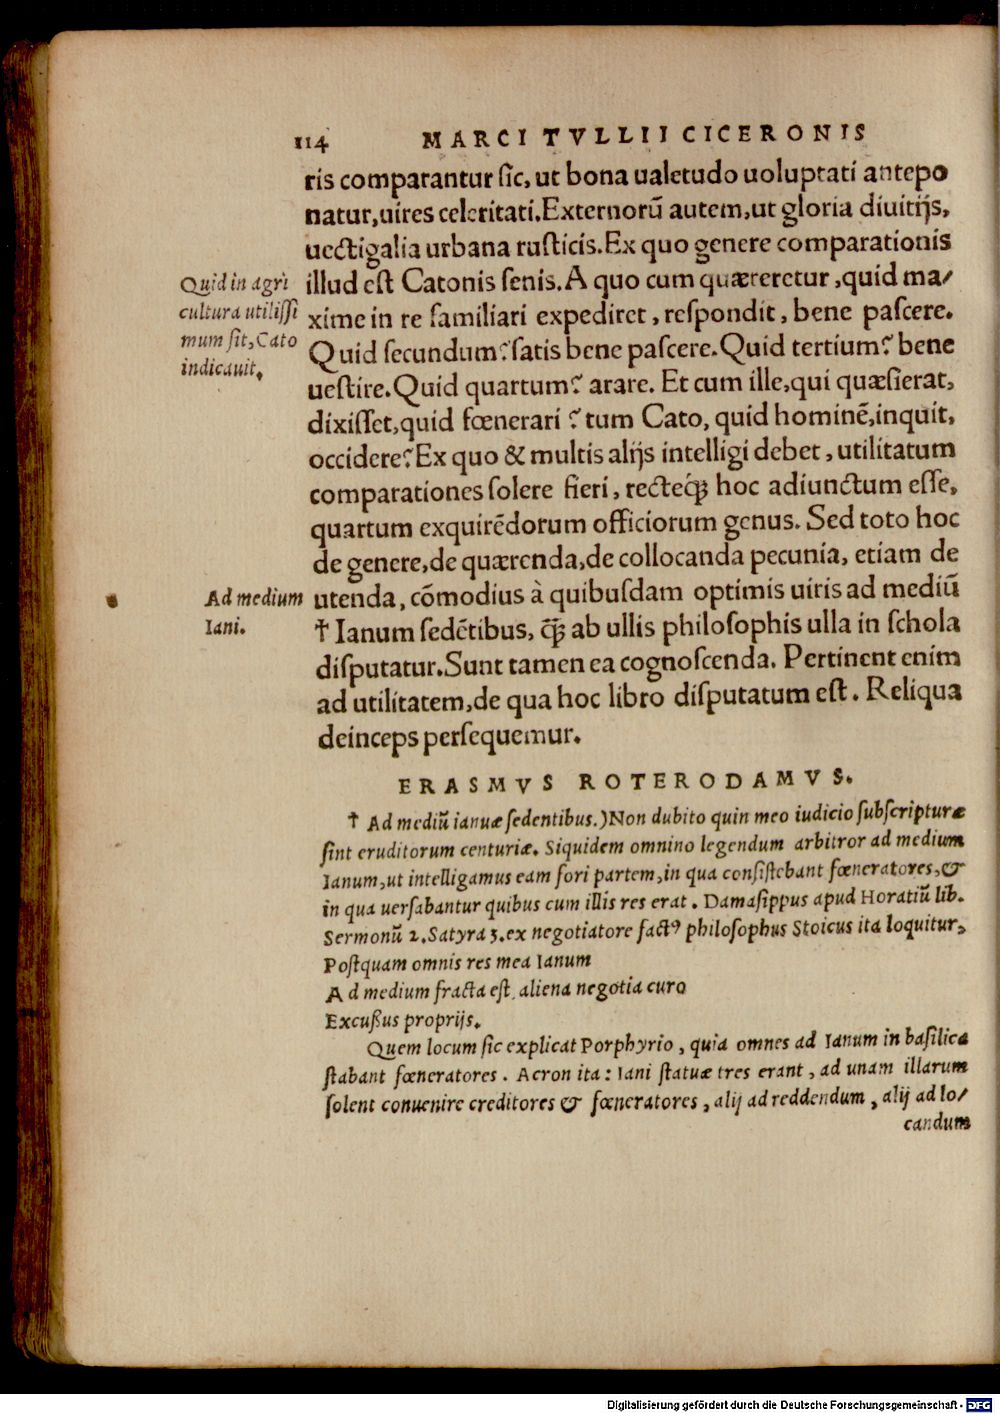 114 MARCI TVLLII CICERONIS
ris comparantur ſic, ut bona ualetudo uoluptati antepo
natur, uires celeritati. Externorū autem, ut gloria diuitijs,
uectigalia urbana ruſticis. Ex quo genere comparationis
illud eſt Catonis ſenis. A quo cum quæreretur, quid ma/
xime in re familiari expediret, reſpondit, bene paſcere.
Quid ſecundum? ſatis bene paſcere. Quid tertium? bene
ueſtire. Quid quartum? arare. Et cum ille, qui quæſierat,
dixiſſet, quid fœnerari? tum Cato, quid hominē, inquit,
occidere? Ex quo & multis alijs intelligi debet, utilitatum
comparationes ſolere fieri, recteq́ꝫ hoc adiunctum eſſe,
quartum exquirēdorum officiorum genus. Sed toto hoc
de genere, de quærenda, de collocanda pecunia, etiam de
utenda, cōmodius à quibuſdam optimis uiris ad mediū
† Ianum ſedētibus, q̄ꝫ ab ullis philoſophis ulla in ſchola
diſputatur. Sunt tamen ea cognoſcenda. Pertinent enim
ad utilitatem, de qua hoc libro diſputatum eſt. Reliqua
deinceps perſequemur.
Quid in agri
cultura utiliſſi
mum ſit, Cato
indicauit.
Ad medium
Iani.
ERASMVS ROTERODAMVS.
† Ad mediū ianuæ ſedentibus.) Non dubito quin meo iudicio ſubſcripturæ
ſint eruditorum centuriæ. Siquidem omnino legendum arbitror ad medium
Ianum, ut intelligamus eam fori partem, in qua conſiſtebant fœneratores, &
in qua uerſabantur quibus cum illis res erat. Damaſippus apud Horatiū lib.
Sermonū 2. Satyra 3. ex negotiatore factꝰ philoſophus Stoicus ita loquitur,
Poſtquam omnis res mea Ianum
Ad medium fracta eſt, aliena negotia curo
Excußus proprijs.
Quem locum ſic explicat Porphyrio, quia omnes ad Ianum in baſilica
ſtabant fœneratores. Acron ita: Iani ſtatuæ tres erant, ad unam illarum
ſolent conuenire creditores & fœneratores, alij ad reddendum, alij ad lo/
candum
Digitalisierung gefördert durch die Deutsche Forschungsgemeinschaft - DFG